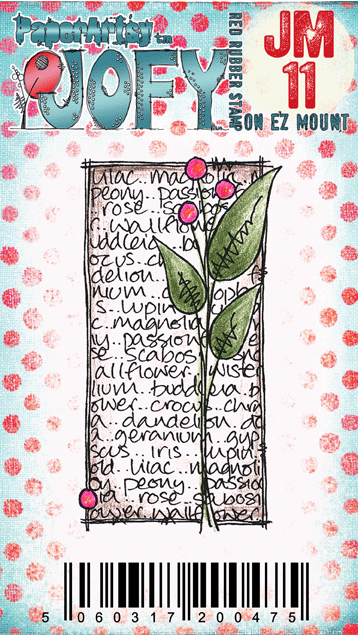 PaperArtsy™
JOFY
RED RUBBER STAMP
JM
11
ON EZ MOUNT
lilac magnolia
peony passion
rose scabos
wallflo
uddleia b
ocus c
delion
nium ophi
s lupin
c magnolia
ny passion
e scabos
allflower
lium buddleia b
ower crocus chr
a dandelion da
a geranium gyp
scus iris lupin
old lilac magnoli
y peony passio
rose scabosi
ower wallflower
5 060317 200475